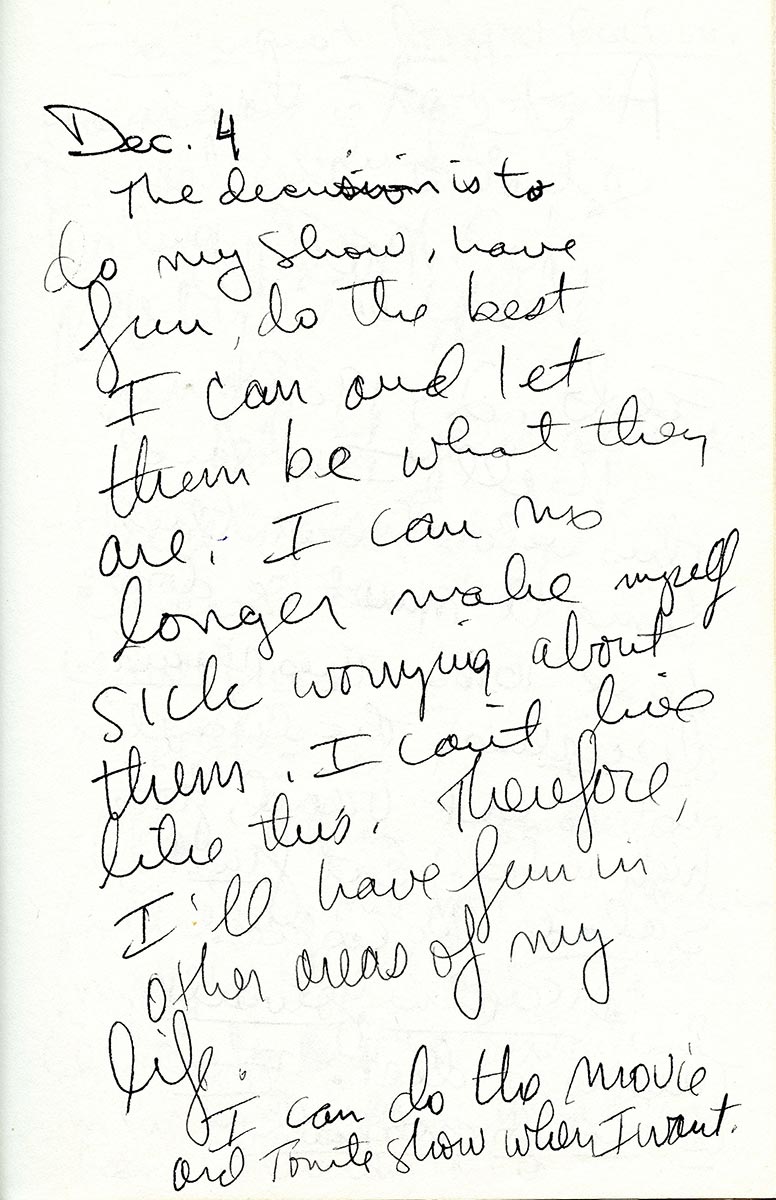 Dec. 4
The decision is to
do my show, have
fun, do the best
I can and let
them be what they
are. I can no
longer make myself
sick worrying about
them. I can't live
like this. Therefore,
I'll have fun in
other areas of my
life.
I can do the movie
and Tonite show when I want.